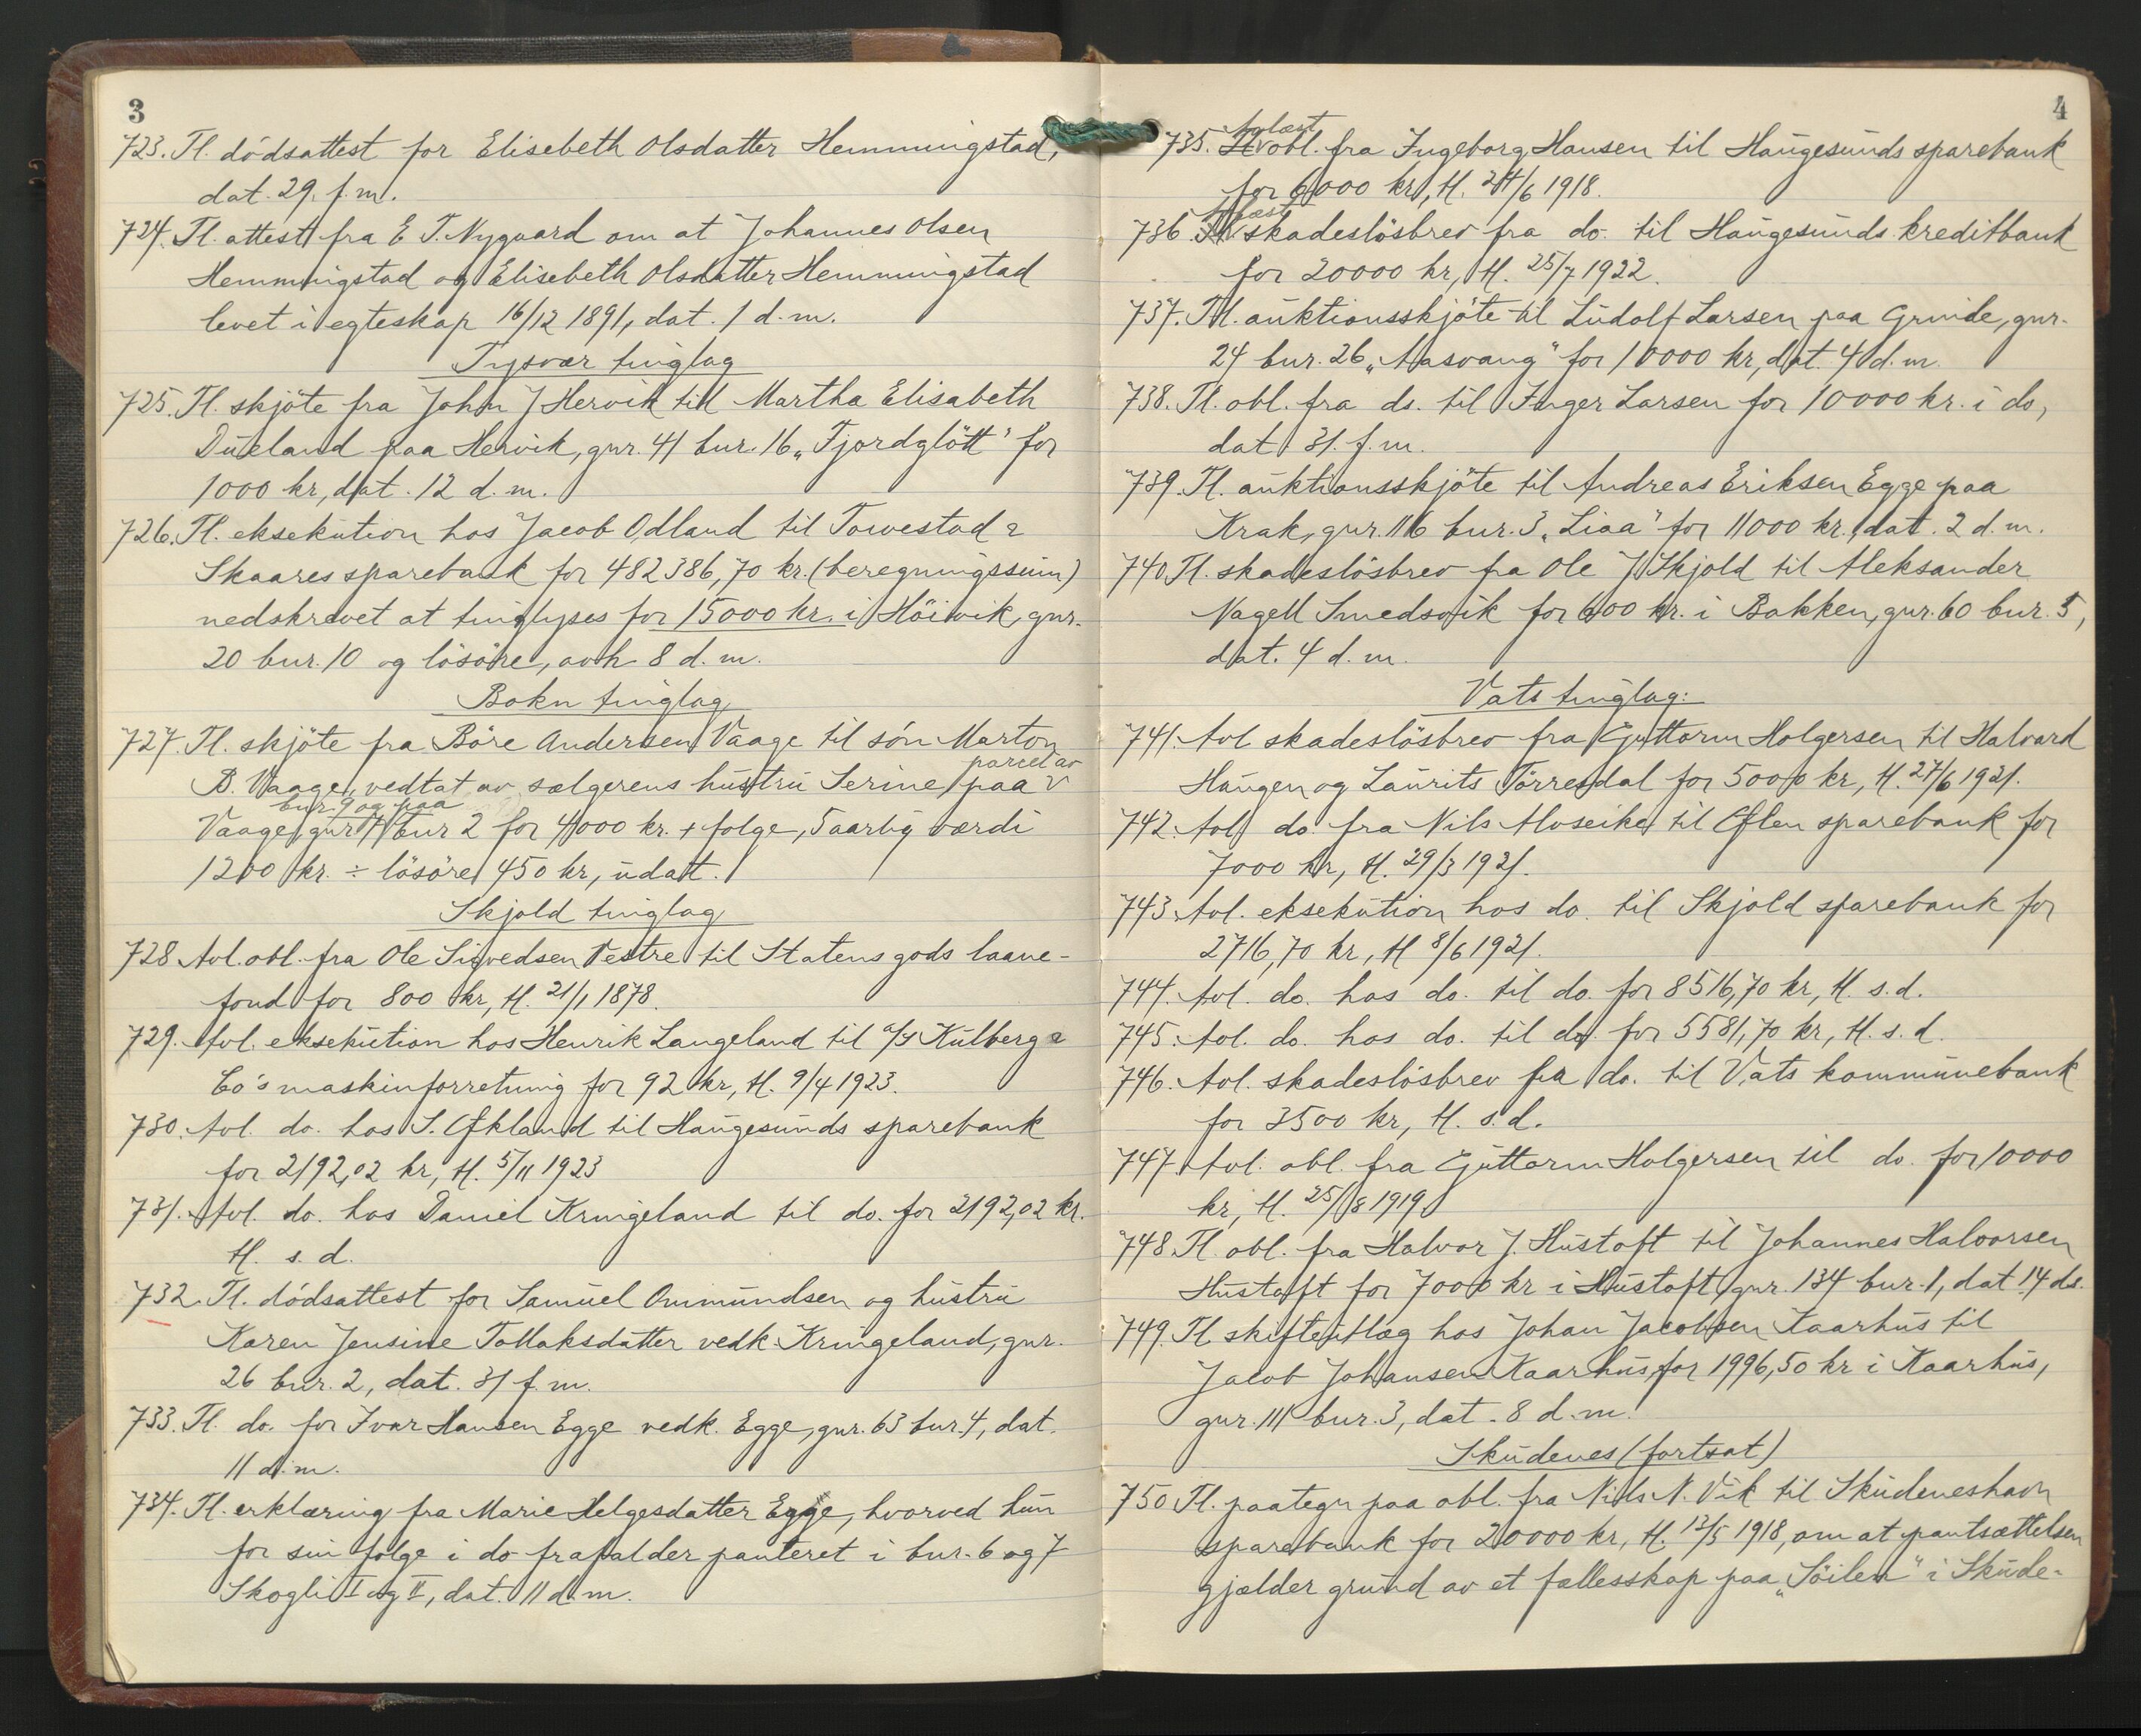 3
723. Tl. dödsattest for Elisebeth Olsdatter Hemmingstad,
dat. 29. f.m.
724. Tl. attest fra E T. Nygaard om at Johannes Olsen
Hemmingstad og Elisebeth Olsdatter Hemmingstad
levet i egteskap 16/12 1891, dat. 1 d.m.
Tysvær tinglag
725. Tl. skjöte fra John J Hervik till Martha Elisabeth
Dueland paa Hervik, gnr. 41 bnr. 16 „Fjordglött" for
1000 kr, dat. 12 d.m.
726. Tl. eksekution hos Jacob Odland til Torvestad &
Skaares sparebank for 482386,70 kr. (beregningssum)
nedskrevet at tinglyses for 15000 kr. i Höivik, gnr.
20 bnr. 10 og lösöre, avh 8 d.m.
Bokn tinglag
727. Tl. skjöte fra Böre Andersen Vaage til sön Marton
B. Vaage, vedtat av sælgerens hustru Serine, paa v parcel av
Vaage, gnr 4 bnr. 9 og paa bnr 2 for 4000 kr. + folge, 5 aarlig værdi
1200 kr. ÷ lösöre 450 kr, udatt.
Skjold tinglag
728 Avl. obl. fra Ole Sivedsen Vestre til Statens gods laane-
fond for 800 kr, tl. 21/1 1878.
729. Avl. eksekution hos Henrik Langeland til A/S Kulberg &
Co's maskinforretning for 92 kr, tl. 9/4 1923.
730. Avl. do. hos S. Ökland til Haugesunds sparebank
for 2192,02 kr, tl. 5/11 1923
731. Avl. do. hos Daniel Kringeland til do. for 2192,02 kr.
tl. s.d.
732. Tl. dödsattest for Samuel Ommundsen og hustru
Karen Jensine Tollaksdatter vedk. Kringeland, gnr.
26 bnr. 2, dat. 31 f.m.
733. Tl. do. for Ivar Hansen Egge vedk. Egge, gnr. 63 bnr. 4, dat.
11 d.m.
734. Tl. erklæring fra Marie Helgesdatter Egge, hvorved hun
for sin folge i do frafalder panteret i bnr. 6 og 7
Skogli I og II, dat. 11 d.m.
4
735. Avlæst obl. fra Ingeborg Hansen til Haugesunds sparebank
for 6000 kr, tl. 24/6 1918.
736. Avlæst skadeslösbrev fra do. til Haugesunds kreditbank
for 20000 kr, tl. 25/7 1922.
737. Tl. auktionsskjöte til Ludolf Larsen paa Grinde, gnr.
24 bnr. 26 „Aasvang" for 10000 kr, dat. 4 d.m.
738. Tl. obl. fra ds. til Inger Larsen for 10000 kr. i do,
dat 31. f.m.
739. Tl. auktionsskjöte til Andreas Eriksen Egge paa
Krak, gnr. 116 bnr. 3 „Liaa" for 11000 kr. dat. 2 d.m.
740. Tl. skadeslösbrev fra Ole J Skjold til Aleksander
Nagell Smedsvik for 600 kr. i Bakken, gnr. 60 bnr. 5,
dat. 4 d.m.
Vats tinglag:
741. Avl skadeslösbrev fra Guttorm Holgersen til Halvard
Haugen og Laurits Törresdal for 5000 kr, tl. 27/6 1921.
742. Avl do. fra Nils Alvseike til Ölen sparebank for
7000 kr, tl. 29/3 1921.
743. Avl. eksekution hos do. til Skjold sparebank for
2716,70 kr, tl 8/6 1921.
744. Avl. do. hos do. til do. for 8516,70 kr, tl. s.d.
745. Avl. do. hos do. til do. for 5581,70 kr, tl. s.d.
746. Avl. skadeslösbrev fra do. til Vats kommunebank
for 3500 kr, tl. s.d.
747. Avl. obl. fra Guttorm Holgersen til do. for 10000
kr, tl. 25/8 1919.
748 Tl. obl. fra Halvor J. Hustoft til Johannes Halvorsen
Hustoft for 7000 kr i Hustoft, gnr. 134 bnr. 1, dat 14 ds.
749. Tl skifteutlæg hos Johan Jacobsen Kaarhus til
Jacob Johansen Kaarhus, for 1996,50 kr i Kaarhus,
gnr. 111 bnr. 3, dat. 8 d.m.
Skudenes (fortsat)
750 Tl. paategn paa obl. fra Nils N. Vik til Skudeneshavn
sparebank for 20000 kr, tl. 13/5 1918, om at pantsættelsen
gjælder grund av et fællesskap paa „Söilen" i Skude-